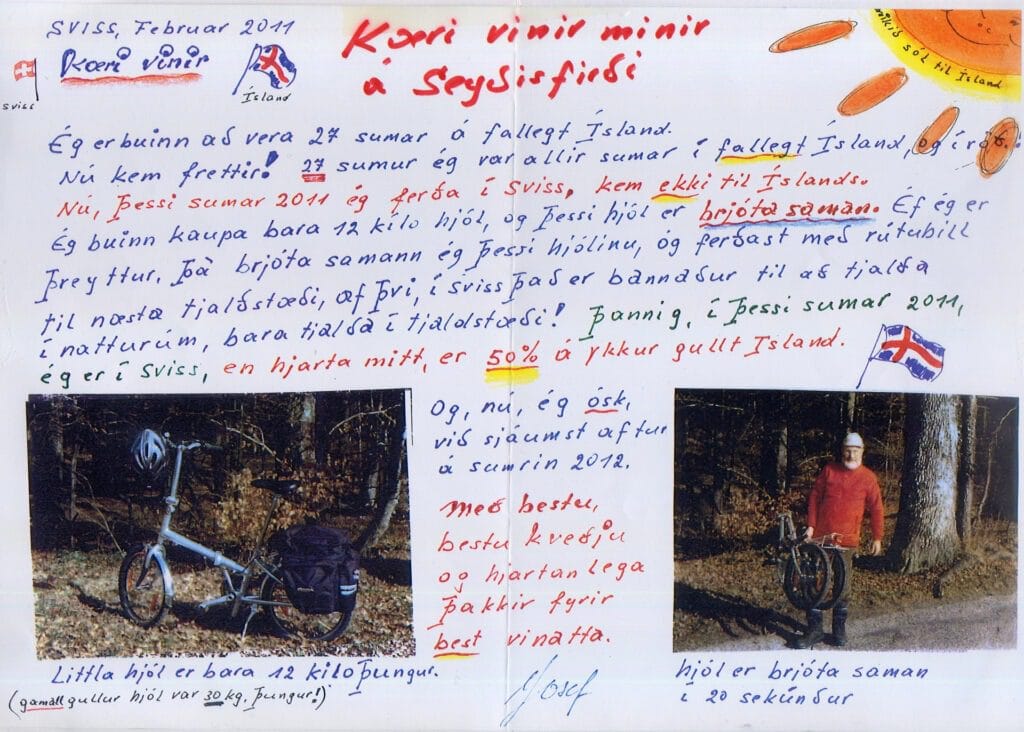 SVISS, Februar 2011
Kæri vinir minir
á Seyðisfirði
Kæri vinir
Sviss
Ísland
mikið sól til Ísland
Ég er buinn að vera 27 sumar á fallegt Ísland.
Nú kem frettir! 27 sumur ég var allir sumar í fallegt Ísland, og í
Nú, Þessi sumar 2011 ég ferða í Sviss, kem ekki til Íslands.
Ég buinn kaupa bara 12 kilo hjól, og Þessi hjól er brjóta saman. Éf ég er
Þreyttur, Þà brjóta samann ég Þessi hjólinu, óg ferðast með rútubill
til næsta tjaldstæði, af Þvi, í Sviss Það er bannaður til að tjalda
í natturúm, bara tjalda í tjaldstæði! Þannig, í Þessi sumar 2011,
ég er í Sviss, en hjarta mitt, er 50% á ykkur gullt Ísland.
Og, nú, ég ósk,
við sjáumst aftur
á sumrin 2012.
Með bestu,
bestu kveðju
og hjartanlega
Þakkir fyrir
best vinatta.
Josef
Littla hjól er bara 12 kilo Þungur.
(gamall gullur hjól var 30 kg. Þungur!)
hjól er brjóta saman
í 20 sekúndur